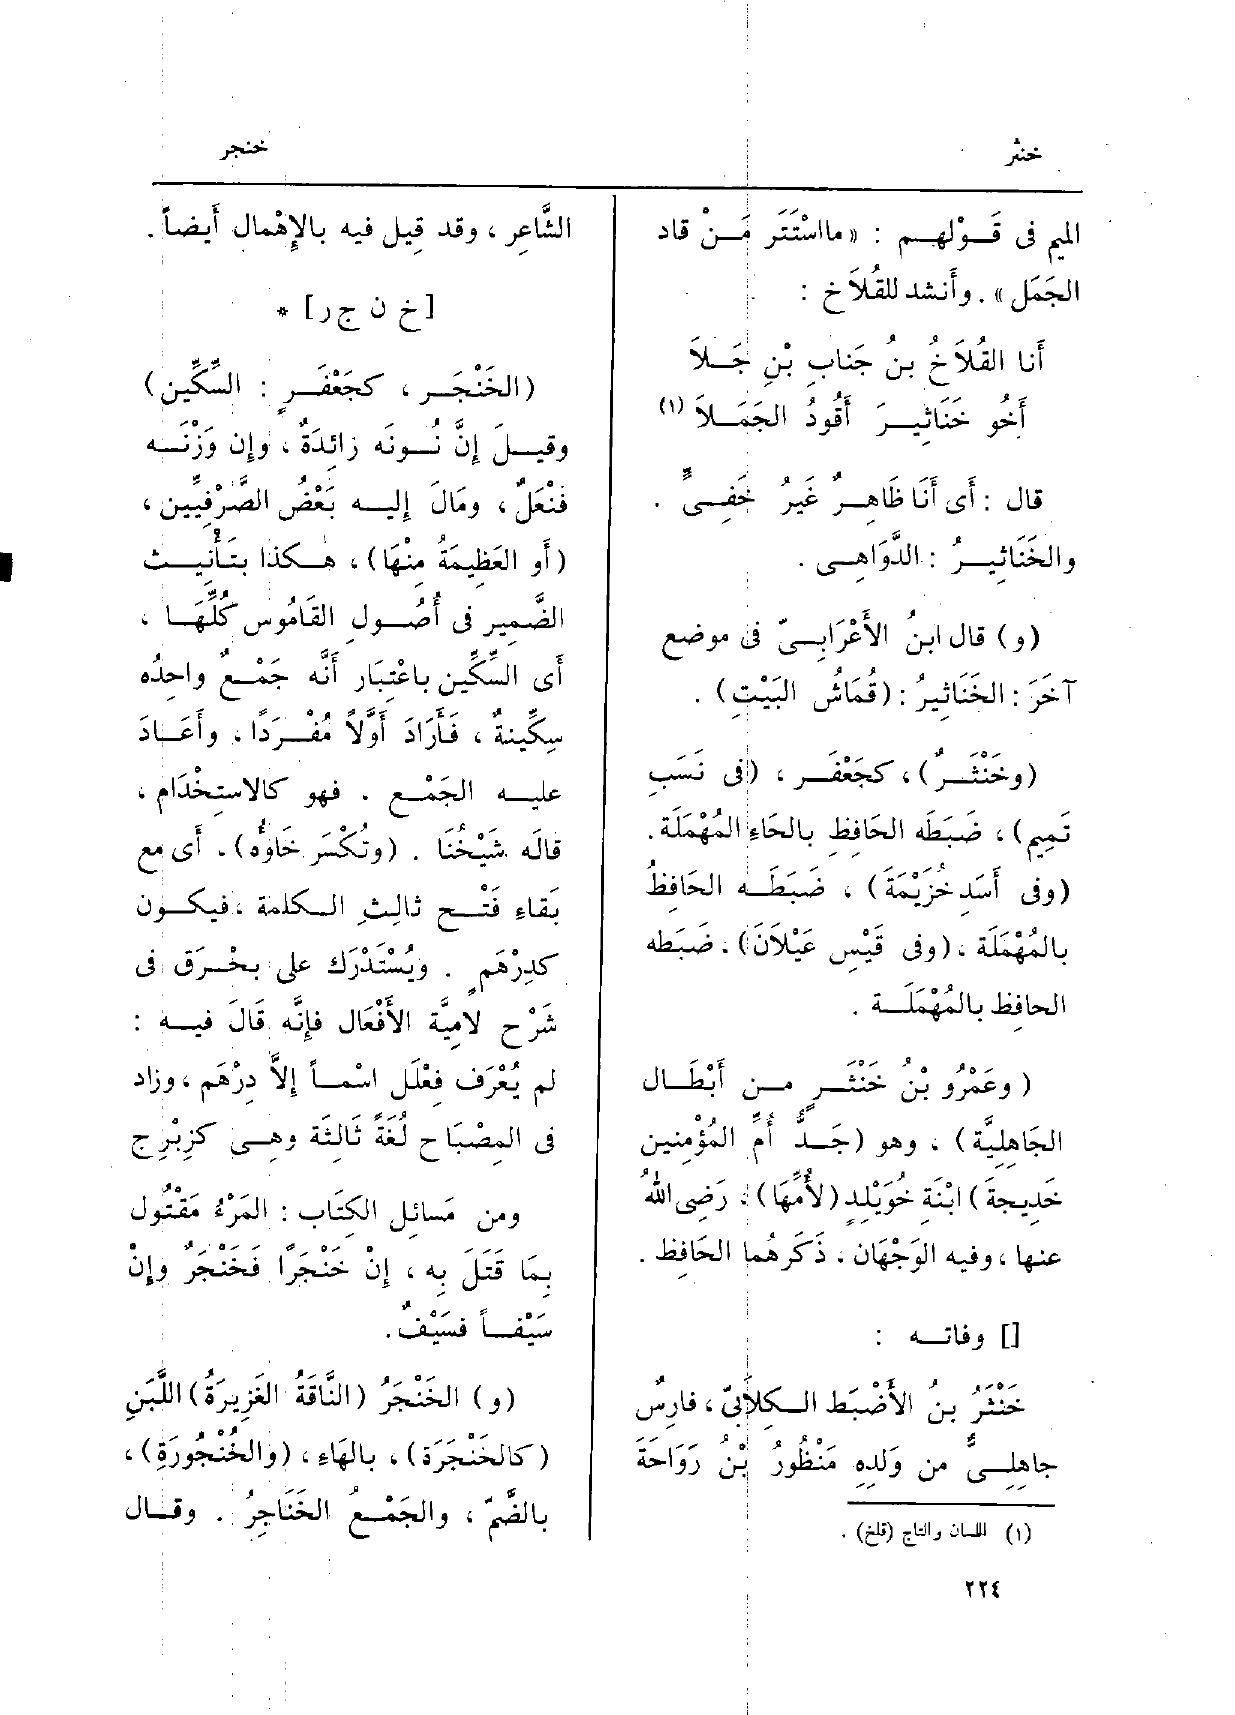 خنثر
خنجر
الميم فى قَوْلهم : «مااسْتَتَر مَنْ قاد
الجَمَل» . وأَنشد للقُلاَخ :
أَنا القُلاَخُ بنُ جَنابِ بْنِ جَلاَ
أَخو خَنَاثِيرَ أَقُودُ الجَمَلاَ (١)
قال : أَى أَنَا ظَاهِرٌ غَيرُ خَفِىٍّ .
والخَنَاثِيرُ : الدَّوَاهِى .
(و) قال ابنُ الأَعْرَابِىّ فى موضع
آخَرَ : الخَنَاثِيرُ : (قُمَاشُ البَيْتِ) .
(وخَنْثَرٌ) ، كجَعْفَر ، (فى نَسَبِ
تَمِيم) ، ضَبَطَه الحَافِظ بالحَاءِ المُهْمَلَة .
(وفى أَسَد خُزَيْمَةَ) ، ضَبَطَه الحَافِظُ
بالمُهْمَلَة ، (وفى قَيْس عَيْلَانَ) ، ضَبَطه
الحافِظ بالمُهْمَلَة .
(وعَمْرُو بْنُ خَنْثَرٍ من أَبْطَال
الجَاهِلِيَّة) ، وهو (جَدُّ أُمِّ المُؤْمنين
خَدِيجةَ) ابْنَة خُوَيْلِدٍ (لأُمِّهَا) ، رَضِى اللهُ
عنها ، وفيه الوَجْهَان ، ذَكَرهُما الحَافِظ .
[] وفاته :
خَنْثَرُ بنُ الأَضْبَط الكِلابِىّ ، فارِسٌ
جاهِلِىٌّ من وَلَدِهِ مَنْظُورُ بْنُ رَوَاحَةَ
(١) اللسان والتاج (قلخ) .
الشَّاعِر ، وقد قِيل فيه بالإِهْمال أَيضاً .
[خ ن ج ر] *
(الخَنْجَر ، كجَعْفَرٍ : السِّكِّين)
وقيلَ إِنَّ نُونَه زائدَةٌ ، وإِن وَزْنَه
فَنْعَلٌ ، ومَالَ إِليه بَعْضُ الصَّرْفِيِّين ،
(أَو العَظِيمَةُ مِنْهَا) ، هكذا بتَأْنِيث
الضَّمِير فى أُصُولِ القَامُوس كُلِّهَا ،
أَى السِّكِّين باعْتِبَار أَنَّه جَمْعٌ واحِدُه
سِكِّينةٌ ، فَأَرَادَ أَوَّلاً مُفْرَدًا ، وأَعَادَ
عليه الجَمْع . فهو كالاستِخْدَام ،
قالَه شَيْخُنَا . (وتُكْسَر خَاوُه) ، أَى مع
بَقاءِ فَتْح ثالِثِ الكلمة ، فيكون
كدِرْهَمٍ . ويُسْتَدْرَك على بحْرَق فى
شَرْح لامِيَّة الأَفْعَال فإِنَّه قَالَ فيه :
لم يُعْرَف فِعْلَل اسْماً إِلاَّ دِرْهَم ، وزاد
فى المِصْبَاح لُغَةً ثَالِثَةً وهى كزِبْرِج
ومن مَسائل الكِتَاب : المَرْءُ مَقْتُول
بمَا قَتَلَ بِه ، إِنْ خَنْجَرًا فَخَنْجَرٌ وإِنْ
سَيْفاً فسَيْفٌ .
(و) الخَنْجَرُ (النَّاقَةُ الغَزِيرَةُ) اللَّبَنِ
(كالخَنْجَرَة) ، بالهَاءِ ، (والخُنْجُورَةِ) ،
بالضَّمّ ، والجَمْعُ الخَنَاجِرُ . وقال
٢٢٤